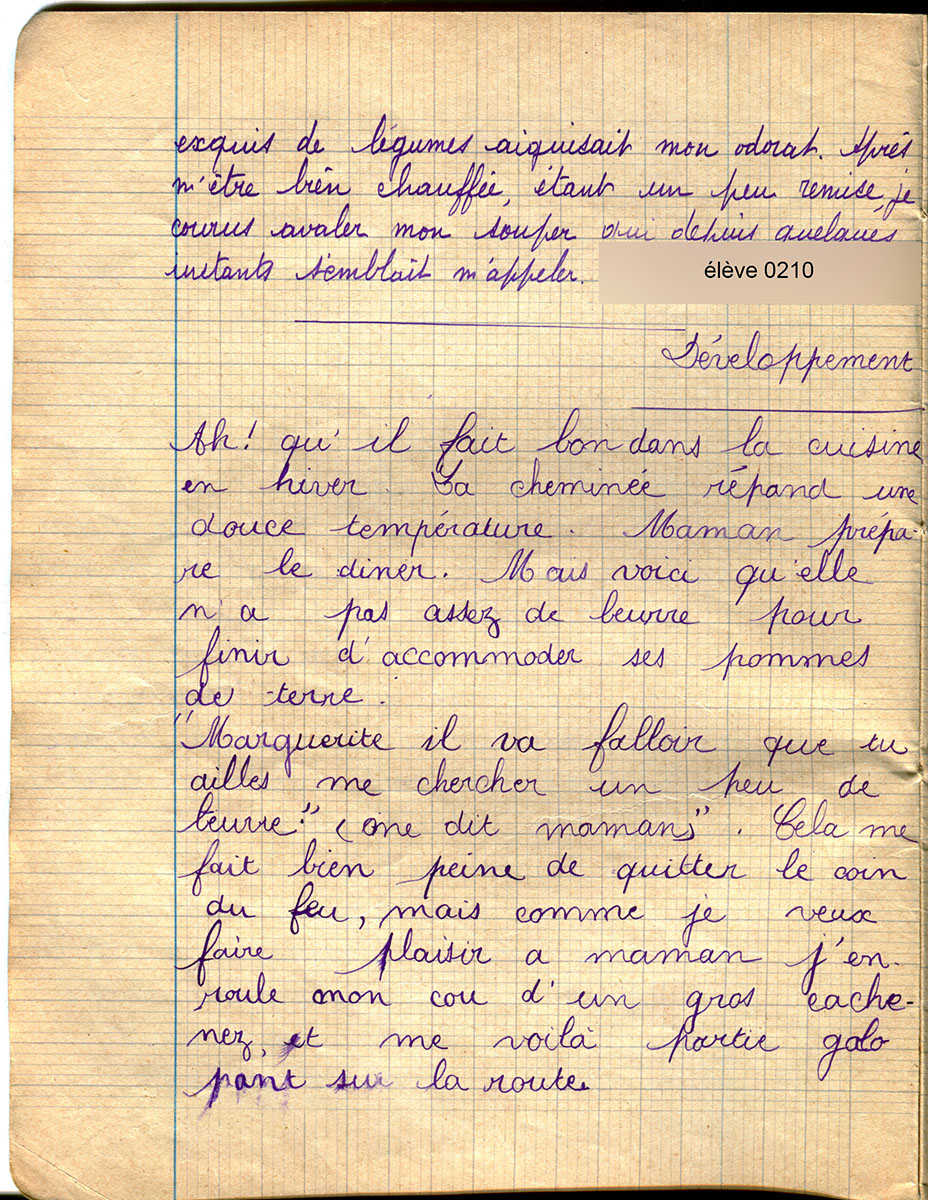 exquis de légumes aiquisait mon odorat. Après
m'être bien chauffée, étant un peu remise, je
courus avaler mon souper qui depuis quelques
instants semblait m'appeler.
élève 0210
Développement
Ah! qu'il fait bon dans la cuisine
en hiver. La cheminée répand une
douce température. Maman prépa-
re le diner. Mais voici qu'elle
n'a pas assez de beurre pour
finir d'accommoder ses pommes
de terre.
"Marguerite il va falloir que tu
ailles me chercher un peu de
beurre!" (me dit maman)". Cela me
fait bien peine de quitter le coin
du feu, mais comme je veux
faire plaisir a maman j'en-
roule mon cou d'un gros cache-
nez, et me voilà partie galo
pant sur la route.